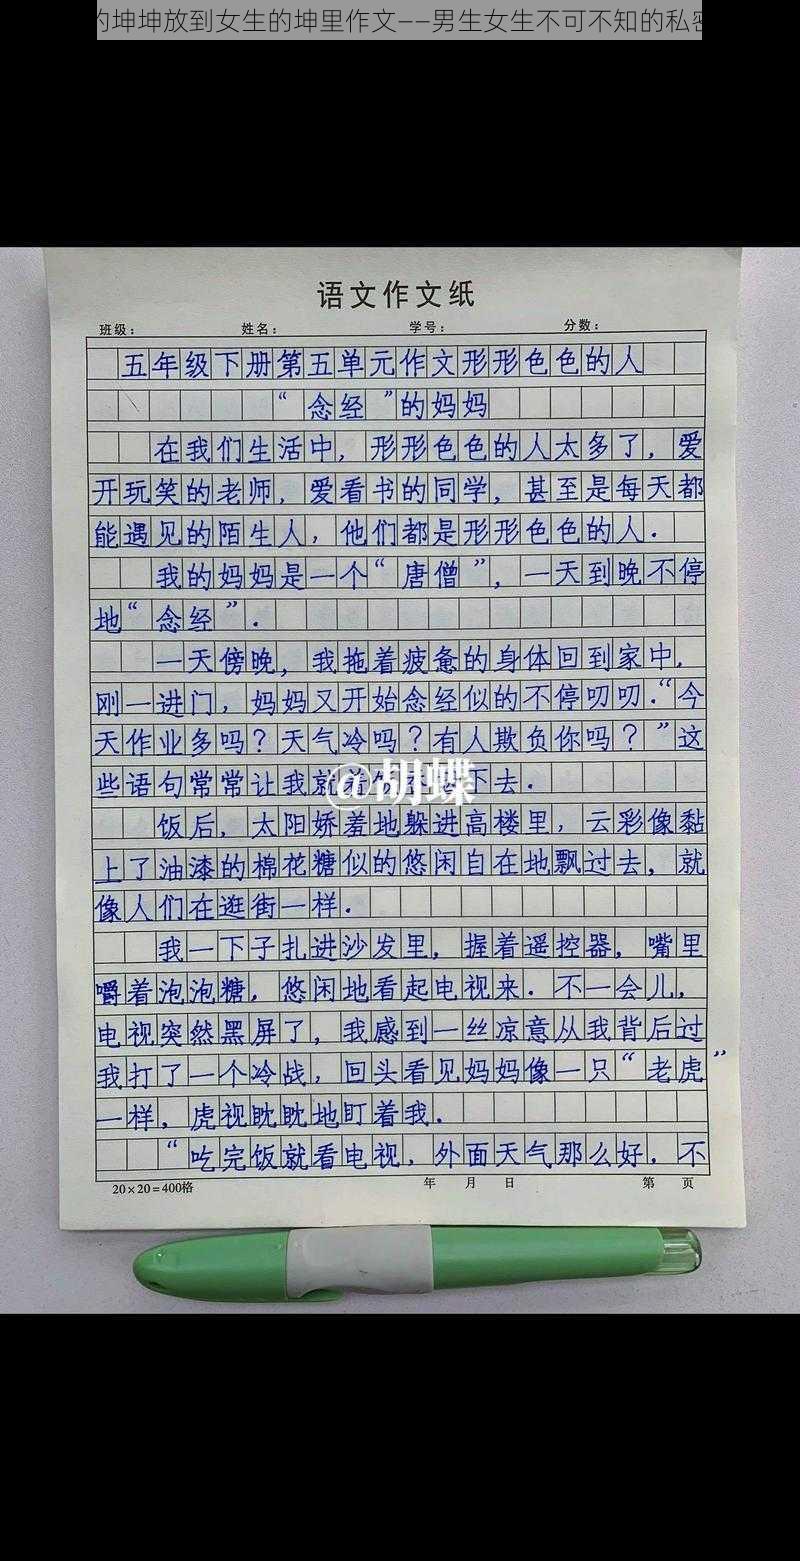 的坤坤放到女生的坤里作文——男生女生不可不知的私密
语文作文纸
班级： 姓名： 学号： 分数：
五年级下册第五单元作文形形色色的人
“念经”的妈妈
在我们生活中，形形色色的人太多了，爱
开玩笑的老师，爱看书的同学，甚至是每天都
能遇见的陌生人，他们都是形形色色的人．
我的妈妈是一个“唐僧”，一天到晚不停
地“念经”．
一天傍晚，我拖着疲惫的身体回到家中，
刚一进门，妈妈又开始念经似的不停叨叨．“今
天作业多吗？天气冷吗？有人欺负你吗？”这
些语句常常让我就着 下去．
@胡蝶
饭后，太阳娇羞地躲进高楼里，云彩像黏
上了油漆的棉花糖似的悠闲自在地飘过去，就
像人们在逛街一样．
我一下子扎进沙发里，握着遥控器，嘴里
嚼着泡泡糖，悠闲地看起电视来．不一会儿，
电视突然黑屏了，我感到一丝凉意从我背后过
我打了一个冷战，回头看见妈妈像一只“老虎”
一样，虎视眈眈地盯着我．
“吃完饭就看电视，外面天气那么好．不
20×20=400格 年 月 日 第 页